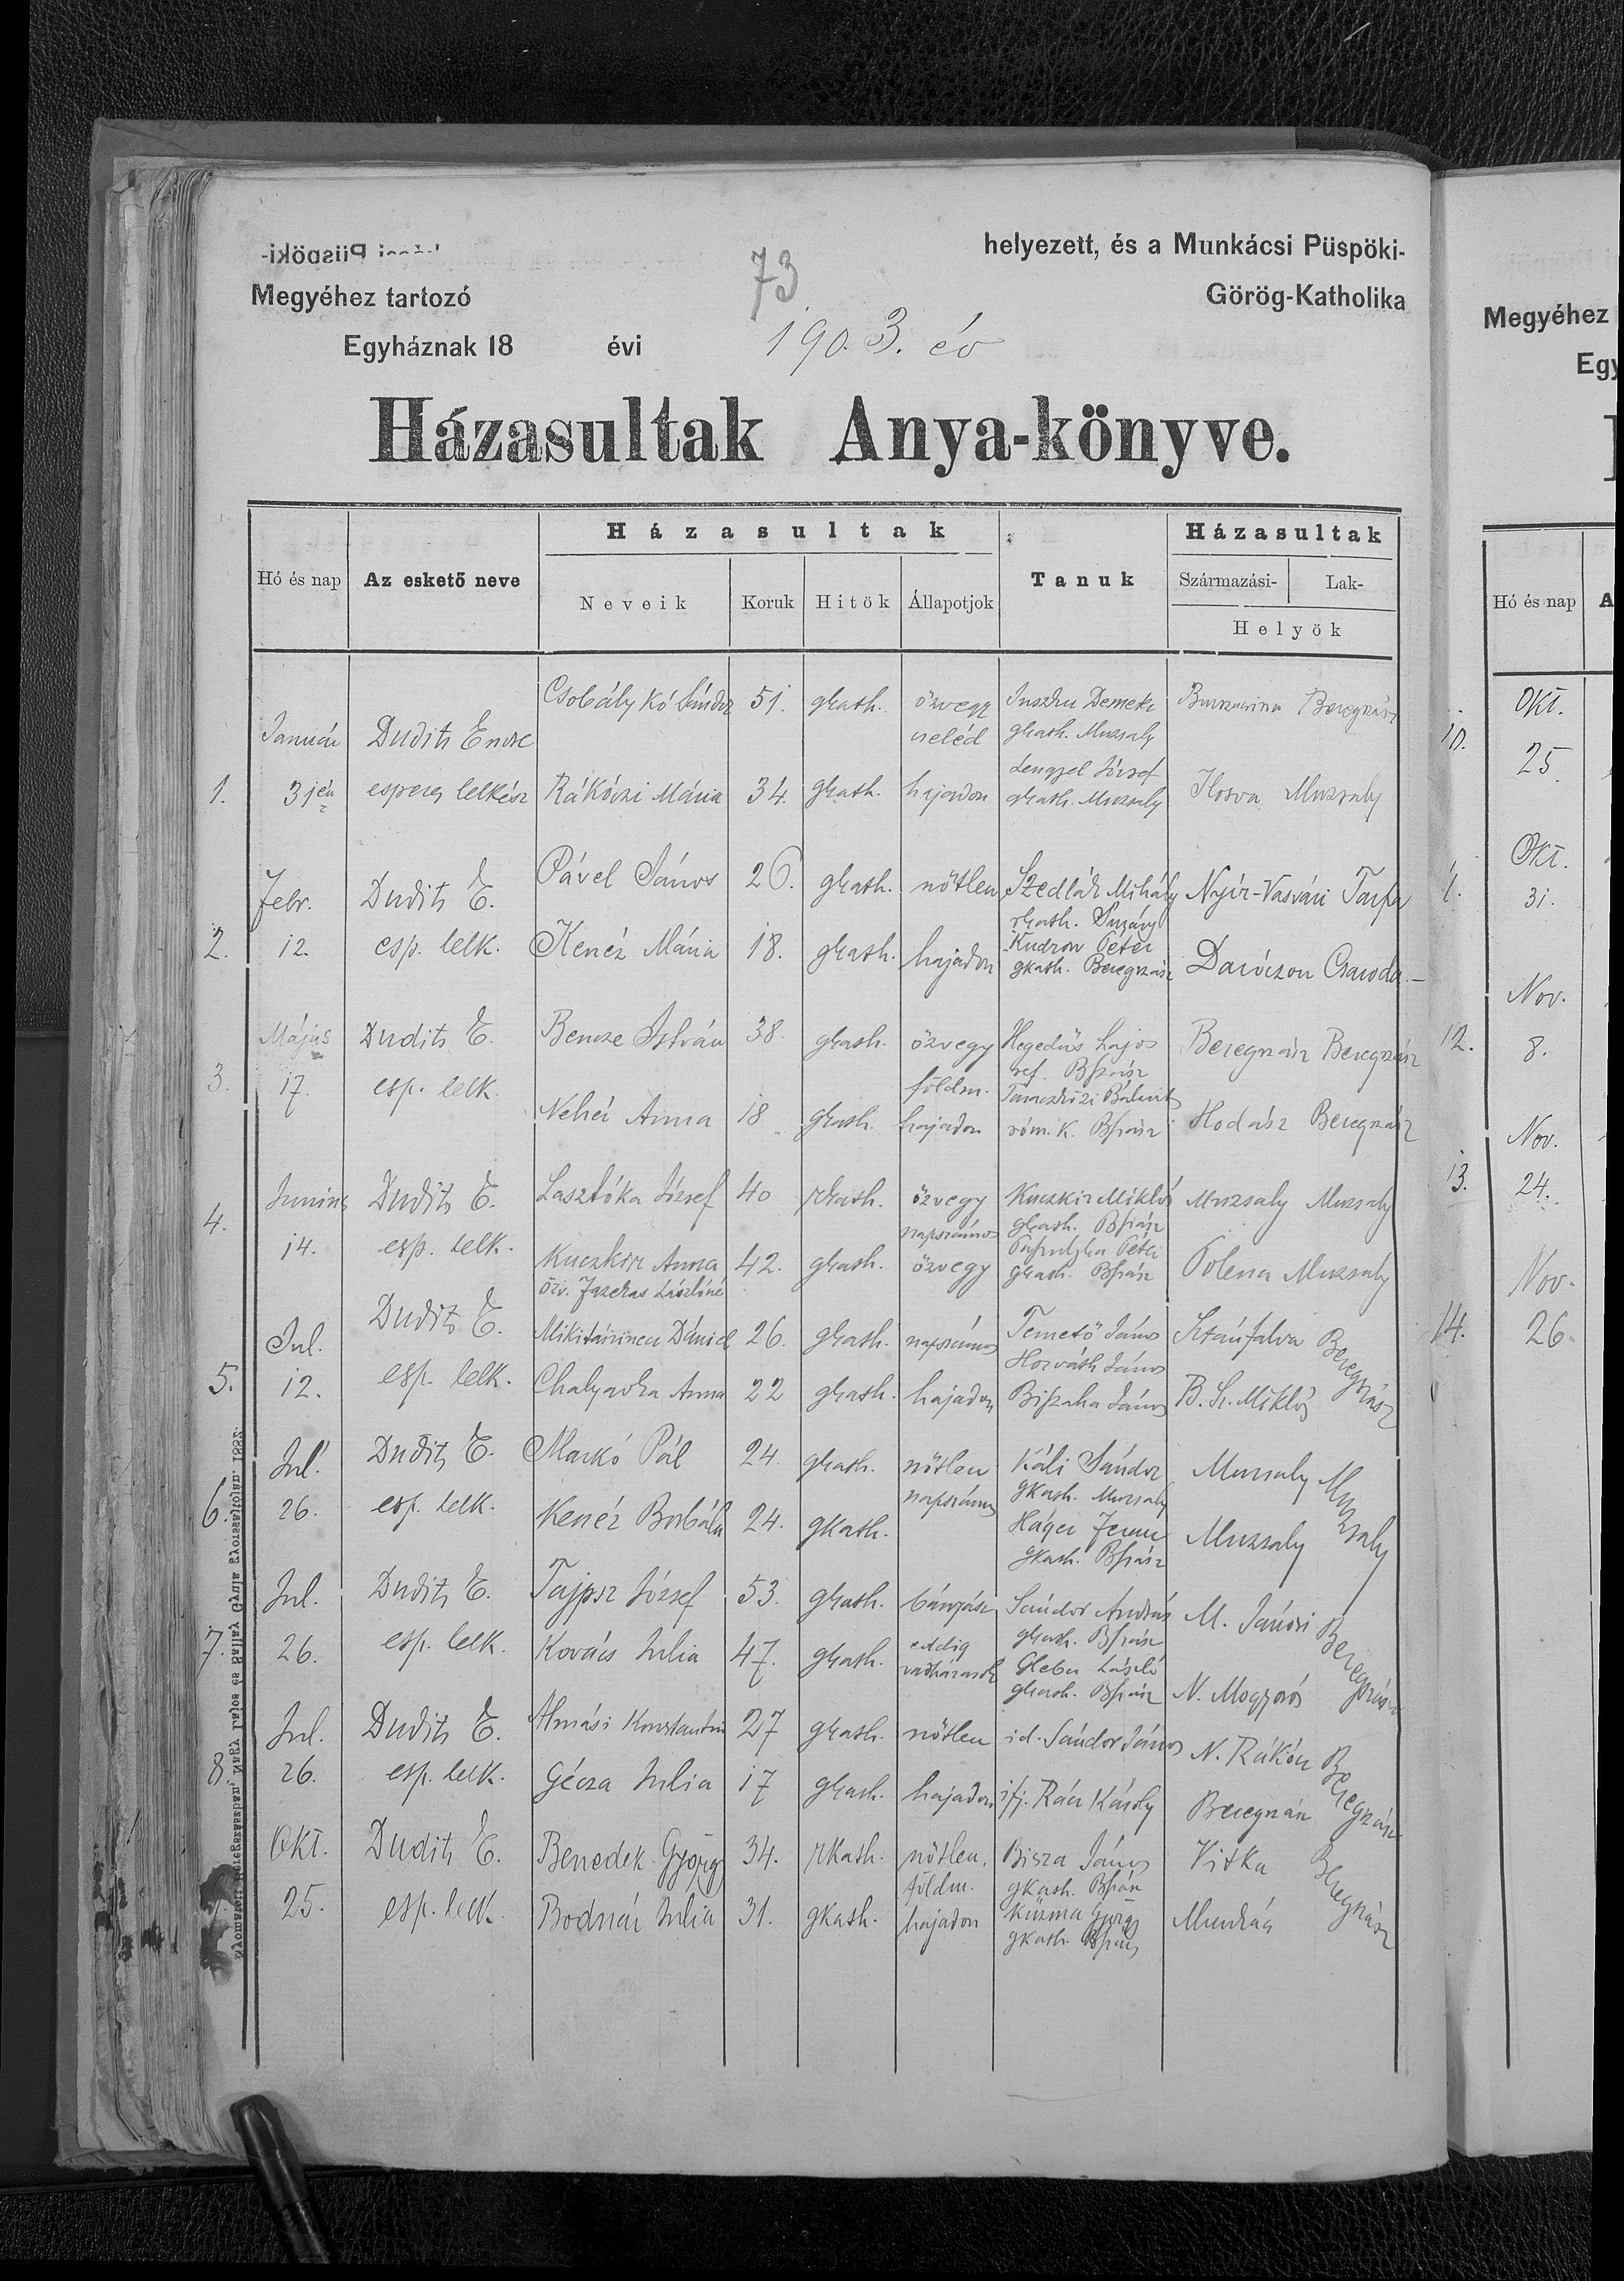 helyezett, és a Munkácsi Püspöki-
Megyéhez tartozó Görög-Katholika
73
Egyháznak 18 évi 1903. év
Házasultak Anya-könyve.
Hó és nap
Az eskető neve
Házasultak
Neveik
Koruk
Hitök
Állapotjok
Tanuk
Házasultak
Származási-
Lak-
Helyök
1.
Január
3 jén
Dudits Endre
esperes lelkész
Csobálykó Sándor 51. gkath. özvegy
cseléd
Demeter
gkath. Muzsaly
Beregszász
Rákóczi Mária 34. gkath. hajadon
Lengyel József
gkath. Muzsaly
Ilosva Muzsaly
2.
Febr.
12.
Dudits E.
esp. lelk.
Pável János 26. gkath. nőtlen
Szedlár Mihály
rkath.
Nyír-Vasvári Tarpa
Kenéz Mária 18. gkath. hajadon
Kudron Péter
gkath. Beregszász
Daróczon Csaroda
3.
Május
17.
Dudits E.
esp. lelk.
Bencze István 38. gkath. özvegy
földm.
Hegedűs Lajos
ref. Bszász
Beregszász Beregszász
Anna 18 gkath. hajadon
Bálint
róm. k. Bszász
Hodász Beregszász
4.
Junius
14.
Dudits E.
esp. lelk.
Lasztóka József 40 rkath. özvegy
napszámos
Kuczkir Miklós
gkath. Bszász
Muzsaly Muzsaly
Kuczkir Anna 42. gkath. özvegy
özv. Fazekas Lászlóné
Péter
gkath. Bszász
Polena Muzsaly
5.
Jul.
12.
Dudits E.
esp. lelk.
Dániel 26. gkath. napszámos
Temető János
Horváth János
Sztánfalva Beregszász
Chalyavka Anna 22 gkath. hajadon
János
B. Sz. Miklós
6.
Jul.
26.
Dudits E.
esp. lelk.
Markó Pál 24. gkath. nőtlen
napszámos
Káli Sándor
gkath. Muzsaly
Muzsaly Muzsaly
Kenéz Borbála 24. gkath.
Háger Ferenc
gkath. Bszász
Muzsaly
7.
Jul.
26.
Dudits E.
esp. lelk.
Tajpsz József 53. gkath. bányász
Sándor András
gkath. Bszász
M. Jánosi Beregszász
Kovács Julia 47. gkath. eddig
vadházasok
Gleba László
gkath. Bszász
N. Mogyorós
8.
Jul.
26.
Dudits E.
esp. lelk.
Almási Konstantin 27 gkath. nőtlen
id. Sándor János
N. Rákócz Beregszász
Gécza Julia 17 gkath. hajadon
ifj. Rácz Károly
Beregszász
Okt.
25.
Dudits E.
esp. lelk.
Benedek György 34. rkath. nőtlen,
földm.
Bisza János
gkath. Bszász
Vitka Beregszász
Bodnár Julia 31. gkath. hajadon
Kuzma György
gkath. Bszász
Munkács
Nyomatott Beregszászban, Nagy Lajos és Gallay Gyula gyorssajtóján. 1887.
Megyéhez
Hó és nap
10.
Okt.
25.
Okt.
31.
12.
Nov.
8.
13.
Nov.
24.
14.
Nov.
26.